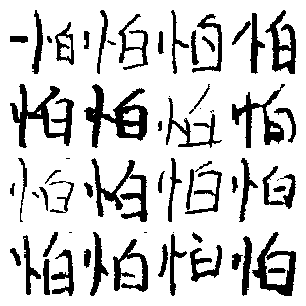 怕怕怕怕
怕怕怕怕
怕怕怕怕
怕怕怕怕